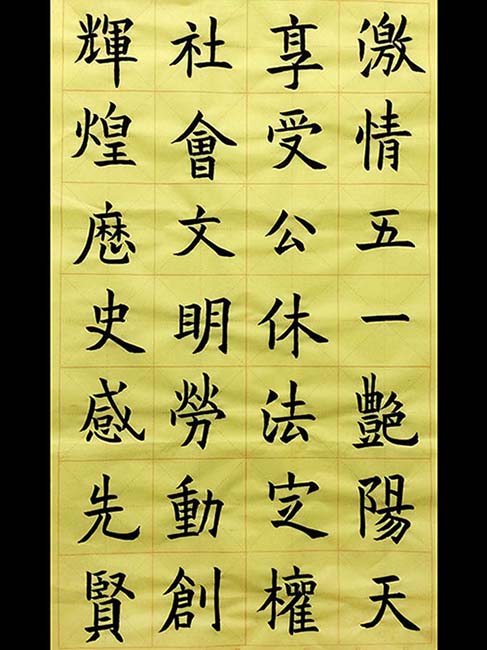 激情五一艷陽天
享受公休法定權
社會文明勞動創
輝煌歷史感先賢